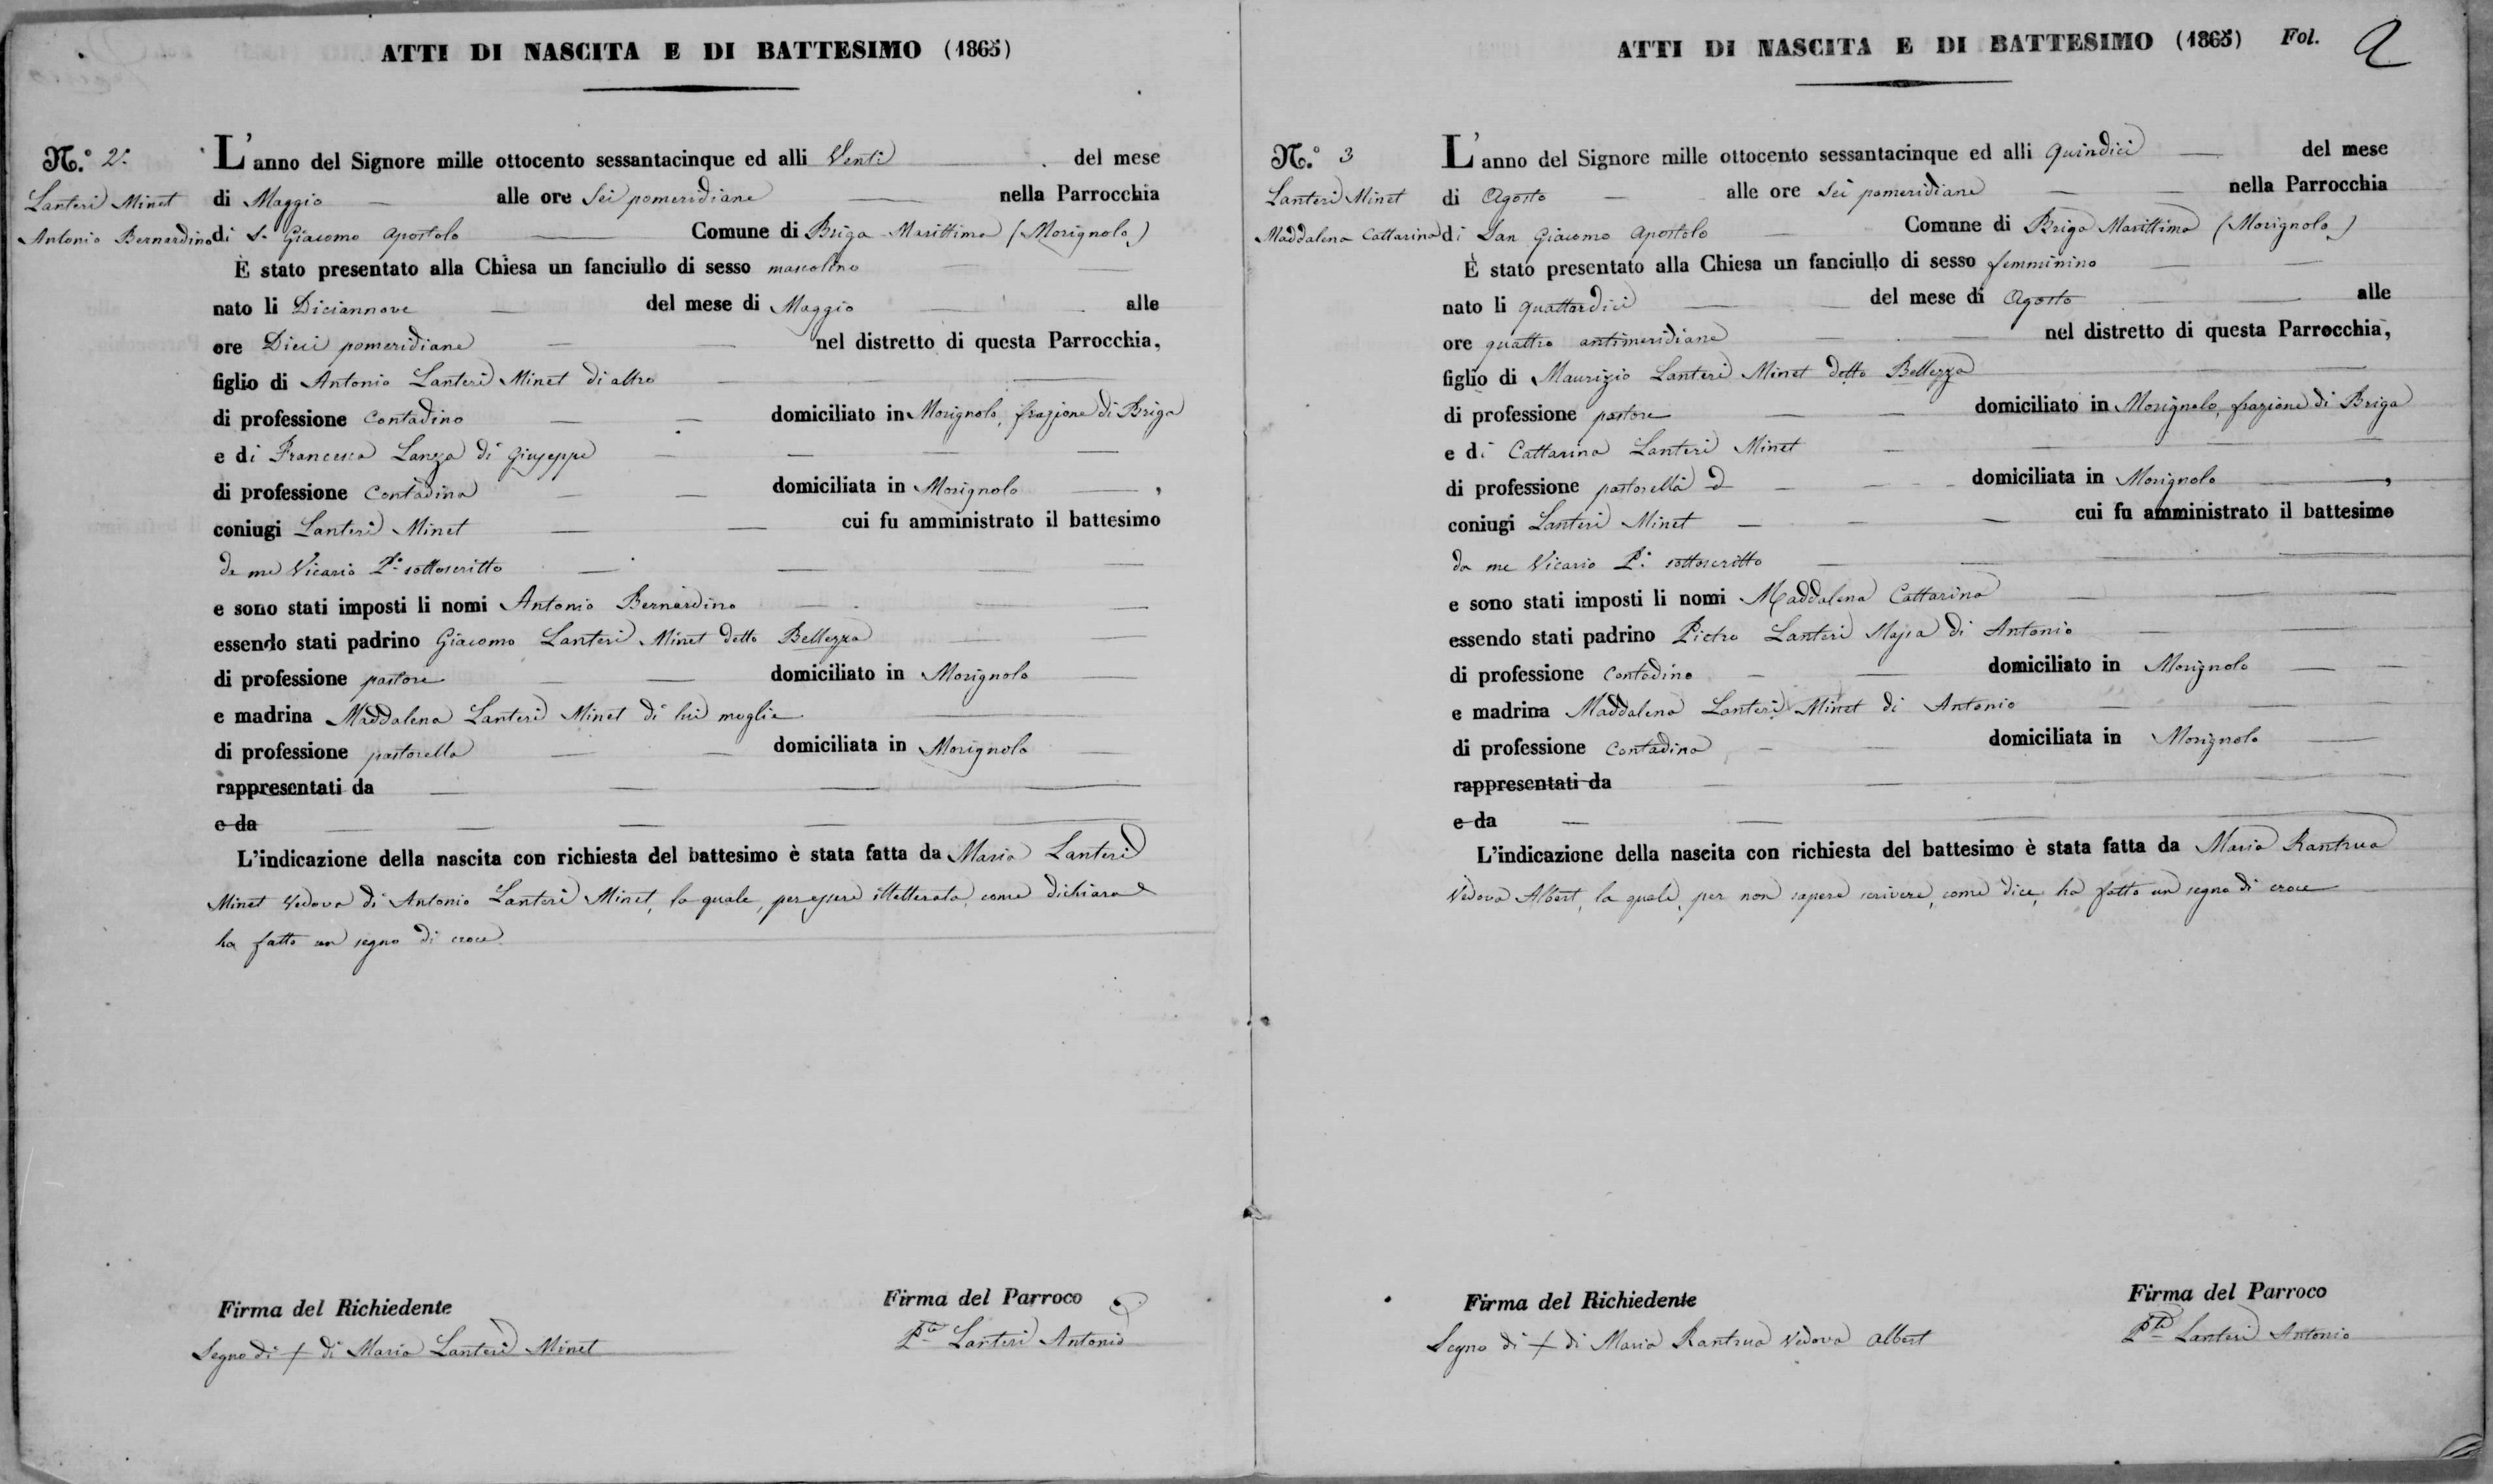 ATTI DI NASCITA E DI BATTESIMO (1865)
N.° 2.
Lanteri Minet
Antonio Bernardino
L'anno del Signore mille ottocento sessantacinque ed alli Venti del mese
di Maggio alle ore Sei pomeridiane nella Parrocchia
di S. Giacomo Apostolo Comune di Briga Marittima (Morignolo)
È stato presentato alla Chiesa un fanciullo di sesso mascolino
nato li Diciannove del mese di Maggio alle
ore Dieci pomeridiane nel distretto di questa Parrocchia,
figlio di Antonio Lanteri Minet di altro
di professione Contadino domiciliato in Morignolo, frazione di Briga
e di Francesca Lanza di Giuseppe
di professione Contadina domiciliata in Morignolo,
coniugi Lanteri Minet cui fu amministrato il battesimo
da me Vicario P. sottoscritto
e sono stati imposti li nomi Antonio Bernardino
essendo stati padrino Giacomo Lanteri Minet detto Bellezza
di professione pastore domiciliato in Morignolo
e madrina Maddalena Lanteri Minet di lui moglie
di professione pastorella domiciliata in Morignolo
rappresentati da
e da
L'indicazione della nascita con richiesta del battesimo è stata fatta da Maria Lanteri
Minet Vedova di Antonio Lanteri Minet, la quale, per essere illetterata, come dichiara
ha fatto un segno di croce
Firma del Richiedente
Segno di + di Maria Lanteri Minet
Firma del Parroco
Pte Lanteri Antonio
ATTI DI NASCITA E DI BATTESIMO (1865) Fol. 2
N.° 3
Lanteri Minet
Maddalena Cattarina
L'anno del Signore mille ottocento sessantacinque ed alli quindici del mese
di Agosto alle ore Sei pomeridiane nella Parrocchia
di San Giacomo Apostolo Comune di Briga Marittima (Morignolo)
È stato presentato alla Chiesa un fanciullo di sesso femminino
nato li quattordici del mese di Agosto alle
ore quattro antimeridiane nel distretto di questa Parrocchia,
figlio di Maurizio Lanteri Minet detto Bellezza
di professione pastore domiciliato in Morignolo, frazione di Briga
e di Cattarina Lanteri Minet
di professione pastorella domiciliata in Morignolo,
coniugi Lanteri Minet cui fu amministrato il battesimo
da me Vicario P. sottoscritto
e sono stati imposti li nomi Maddalena Cattarina
essendo stati padrino Pietro Lanteri di Antonio
di professione Contadino domiciliato in Morignolo
e madrina Maddalena Lanteri Minet di Antonio
di professione Contadina domiciliata in Morignolo
rappresentati da
e da
L'indicazione della nascita con richiesta del battesimo è stata fatta da Maria Rantrua
Vedova Albert, la quale, per non sapere scrivere, come dice, ha fatto un segno di croce
Firma del Richiedente
Segno di + di Maria Rantrua Vedova Albert
Firma del Parroco
Pte Lanteri Antonio